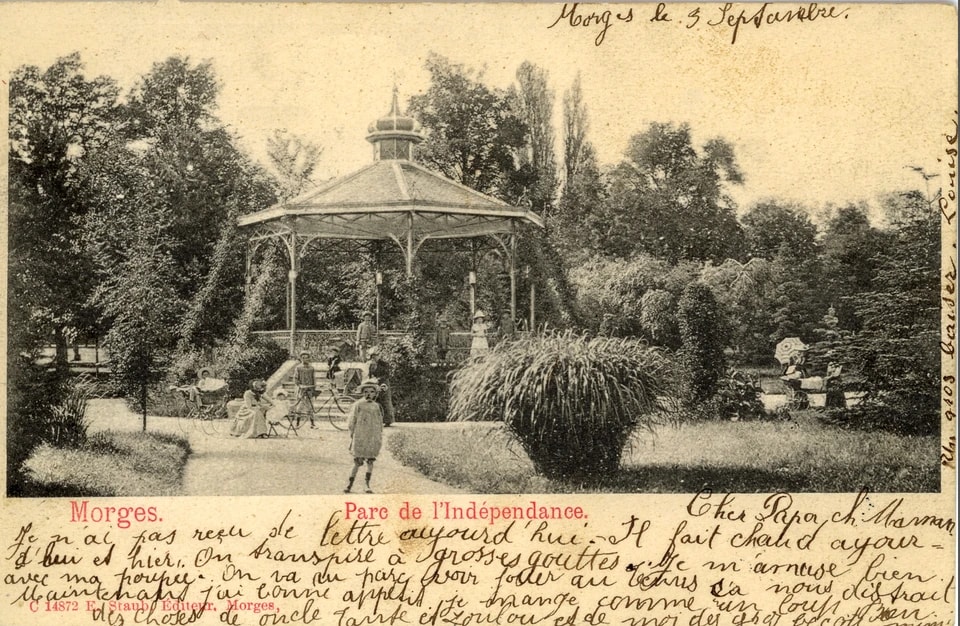 Morges le 3 Septambre.
Morges.
Parc de l'Indépendance.
Cher Papa, ch. Maman
Je n'ai pas reçu de lettre ayourd'hui. Il fait chaud ayour=
d'hui et hier. On transpire à grosses gouttes. Je m'amuse bien
avec ma poupée. On va au parc voir jouer au tennis ça nous distrait
Maintenant j'ai bonne appetit, je mange comme un loup. Bien
C 14872 E. Staub, Editeur, Morges,
des choses de oncle Tante et Loulou et de moi des gros
gros baiser. Louise.